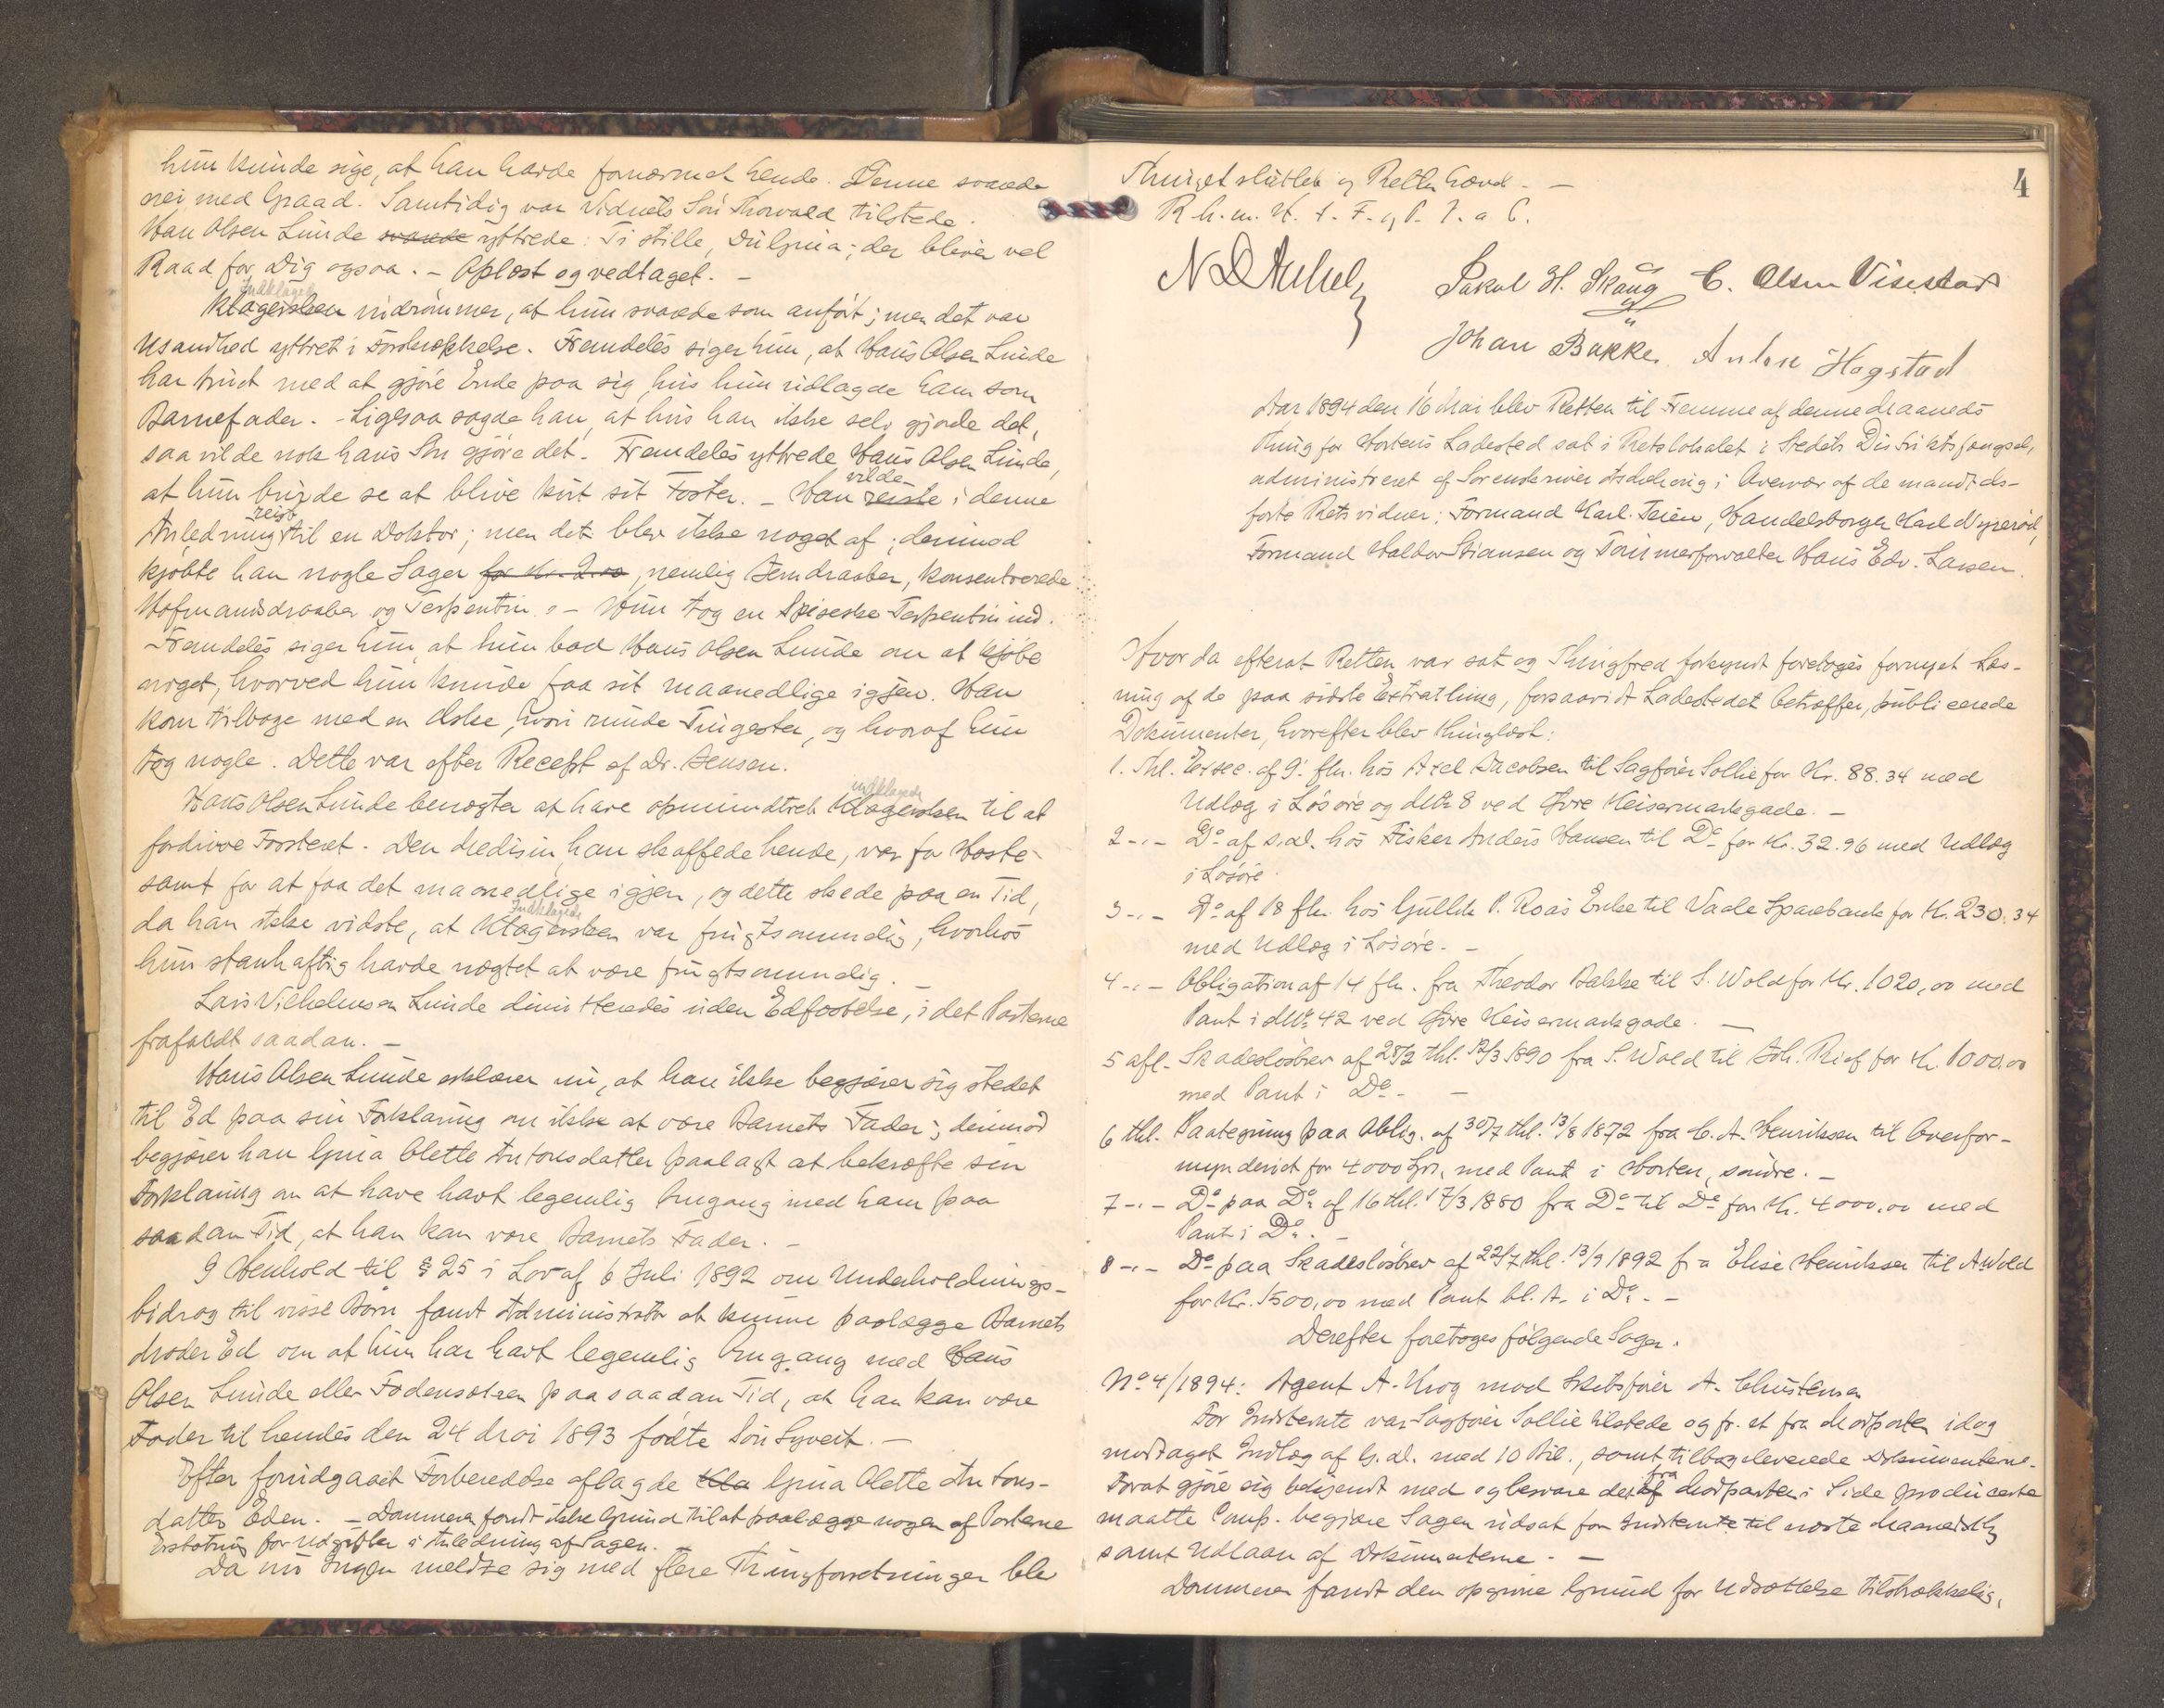 hun kunde sige, at han havde fornærmet hende. Denne svarede
nei med Graad. Samtidig var Vidnets Søn Thorvald tilstede.
Hans Olsen Lunde svarede yttrede: Ti stille, Du Gina; der bliver vel
Raad for Dig ogsaa. - Oplæst og vedtaget. -
Indklagede
Klagersken indrømmer, at hun svarede som anført; men det var
Usandhed yttret i Forskrækkelse. Fremdeles siger hun, at Hans Olsen Lunde
har truet med at gjøre Ende paa sig, hvis hun udlagde ham som
Barnefader. - Ligesaa sagde han, at hvis han ikke selv gjorde det,
saa vilde nok hans Søn gjøre det. Fremdeles yttrede Hans Olsen Lunde,
at hun burde se at blive kvit sit Foster. - Han reiste vilde i denne
Anledning reise til en Doktor; men det blev ikke noget af; derimod
kjøbte han nogle Sager for Kr. 2.00, nemlig Jerndraaber, konsentrerede
Hofmandsdraaber og Terpentin. - Hun tog en Spiseske Terpentin ind.
- Fremdeles siger hun, at hun bad Hans Olsen Lunde om at kjøbe
noget, hvorved hun kunde faa sit maanedlige igjen. Han
kom tilbage med en Æske, hvori runde Tingester, og hvoraf hun
tog nogle. Dette var efter Recept af Dr. Jensen.
Hans Olsen Lunde benægter at have opmuntret Klagersken indklagede til at
fordrive Fosteret. Den Medisin han skaffede hende, var for Hoste
samt for at faa det maanedlige igjen, og dette skede paa en Tid,
Indklagede
da han ikke vidste, at Klagersken var frugtsommelig, hvorhos
hun standhaftig havde nægtet at være frugtsommelig. -
Lars Vilhelmsen Lunde dimitteredes uden Edfæstelse, idet Parterne
frafaldt saadan. -
Hans Olsen Lunde erklærer nu, at han ikke begjærer sig stedet
til Ed paa sin Forklaring om ikke at være Barnets Fader; derimod
begjærer han Gina Olette Antonsdatter paalagt at bekræfte sin
Forklaring om at have havt legemlig Omgang med ham paa
saadan Tid, at han kan være Barnets Fader. -
I Henhold til § 25 i Lov af 6 Juli 1892 om Underholdnings-
bidrag til visse Børn fandt Administrator at kunne paalægge Barnets
Moder Ed om at hun har havt legemlig Omgang med Hans
Olsen Lunde eller Fødenselsen paa saadan Tid, at han kan være
Fader til hendes den 24 Mai 1893 fødte Søn Syvert. -
Efter forudgaaet Forberedelse aflagde Kla Gina Olette Antons-
datter Eden. - Dommeren fandt ikke Grund til at paalægge nogen af Parterne
Erstatning for Udgifter i Anledning af Sagen.
Da nu Ingen meldte sig med flere Thingforretninger blev
4
Thinget sluttet og Retten hævet. -
R. h. m. K. 1. F. og P. I. a C.
Jakob H. Skaug C. Olsen Visestad
Johan Bakke. Anton Hogstad
Aar 1894 den 16 Mai blev Retten til Fremme af denne Maaneds
Thing for Hortens Ladested sat i Retslokalet i Stedets Distriktsfængsel,
administreret af Sorenskriver i Overvær af de mandtals-
førte Retsvidner: Formand Karl Teien, Handelsborger Karl Nyrerød,
Formand Halvor Stiansen og Tømmerforvalter Hans Edv. Larsen.
Hvor da efterat Retten var sat og Thingfred forkyndt foretoges fornyet Læs-
ning af de paa sidste Extrathing, forsaavidt Ladestedet betræffer, publicerede
Dokumenter, hvorefter blev thinglæst:
1. Thl. Exsec. af 9. fln. hos Axel Jacobsen til Sagfører Sollie for Kr. 88.34 med
Udlæg i Løsøre og M№ 8 ved Øvre Keisermarksgade. -
2 -.- Do af s.d. hos Fisker Anders Hansen til Do for Kr. 32.96 med Udlæg
i Løsøre.
3 -.- Do af 18 fln. hos Gullik P. Roas Enke til Vaale Sparebank for Kr. 230.34
med Udlæg i Løsøre. -
4 -.- Obligation af 14 fln. fra Theodor Bakke til S. Wold for Kr. 1020,00 med
Pant i M№ 42 ved Øvre Keisermarksgade. -
5 afl. Skadesløsbrev af 28/2 thl. 12/3 1890 fra S. Wold til Joh. Rief for Kr. 1000,00
med Pant i Do. -
6 thl. Paategning paa Oblig. af 30/7 thl. 13/8 1872 fra C. A. Henriksen til Overfor-
mynderiet for 4000 Kr. med Pant i Horten, søndre. -
7 -.- Do paa Do af 16 thl. 17/3 1880 fra Do til Do for Kr. 4000,00 med
Pant i Do. -
8 -.- Do paa Skadesløsbrev af 22/7 thl. 13/9 1892 fra Elise Henriksen til A. Wold
for Kr. 1500,00 med Pant bl. A. i Do. -
Derefter foretoges følgende Sager.
No 4/1894: Agent A. Krog mod Skibsfører A. Christensen
For Indstevnte var Sagfører Sollie tilstede og fr. et fra Modparten idag
modtaget Indlæg af G. D. med 10 Bil., samt tilbageleverede Dokumenterne.
Forat gjøre sig bekjendt med og besvare det af fra Modpartens Side producerte
maatte Comp. begjære Sagen udsat for Indstevnte til næste Maanedsthg
samt Udlaan af Dokumenterne. -
Dommeren fandt den opgivne Grund for Udsættelse tilstrækkelig,